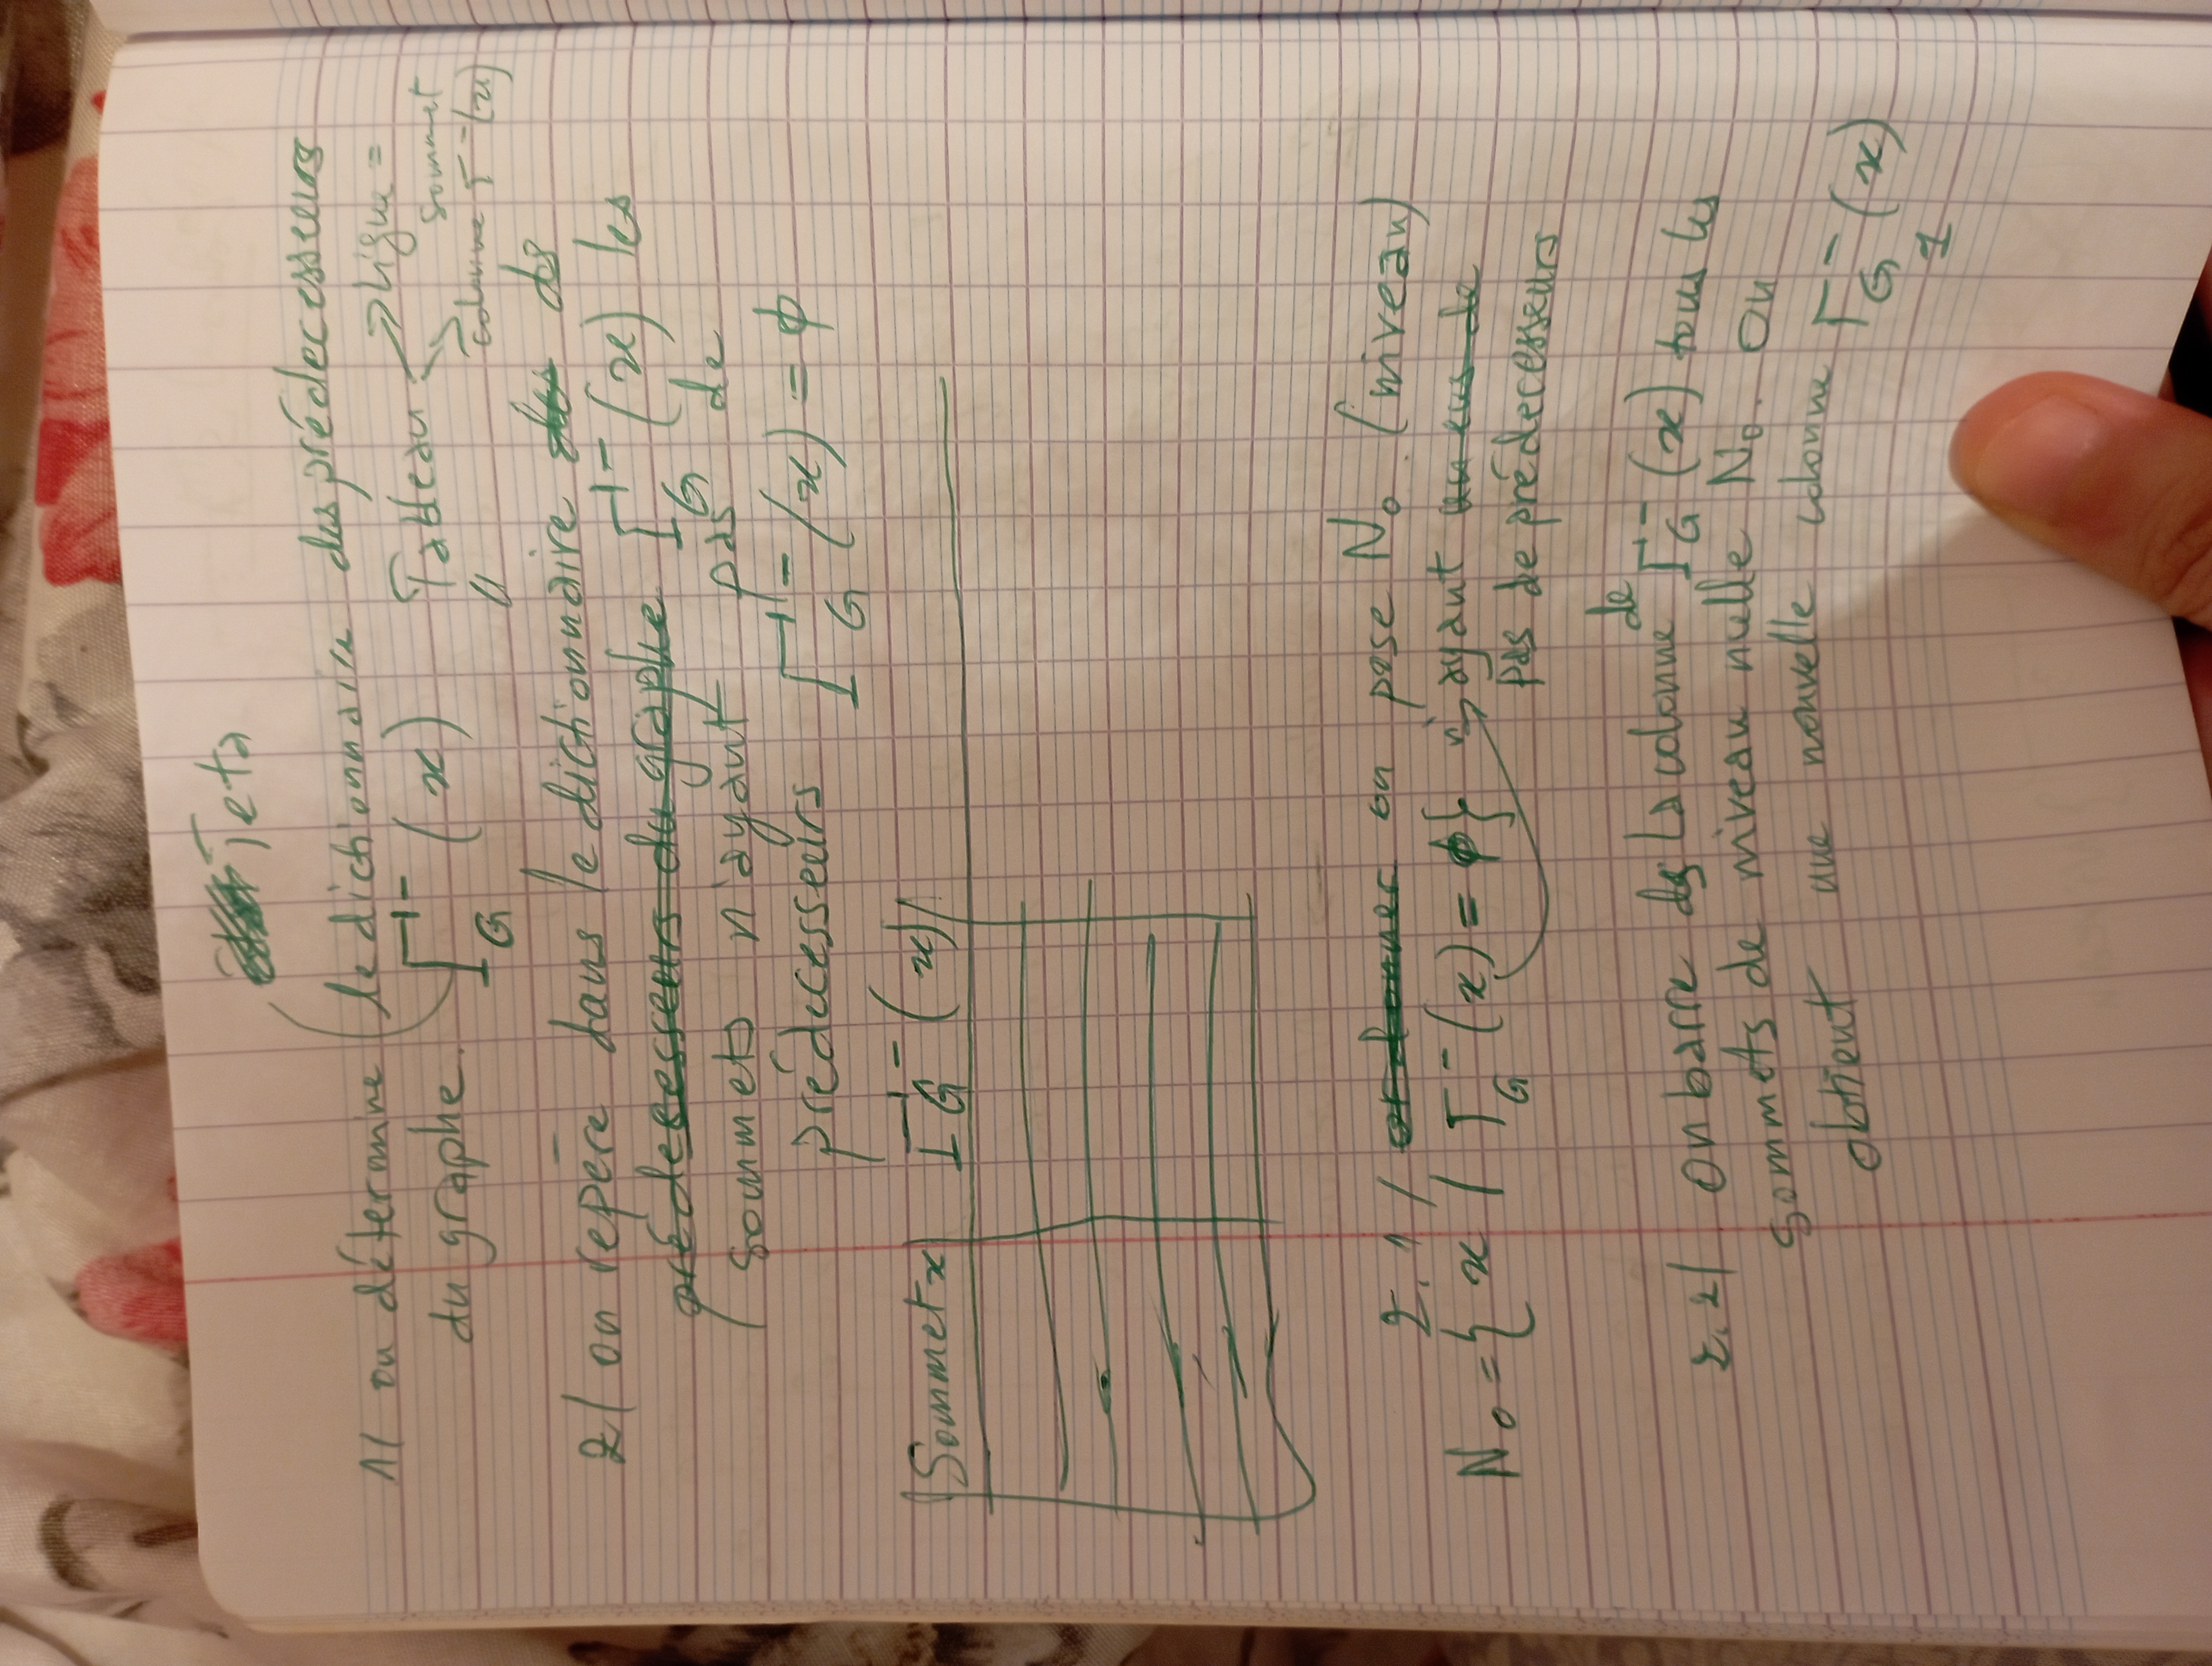 1/ on détermine (le dictionnaire des prédecesseurs
du graphe. Γ⁻G (x) Tableau → ligne = sommet
→ colonne Γ⁻(x)
2/ on repère dans le dictionnaire ds
prédecesseurs du graphe Γ⁻G (x) les
sommets n'ayant pas de
prédecesseurs Γ⁻G (x) = ϕ
Sommet x | Γ⁻G (x)
2.1/ on pose N₀. (niveau)
N₀ = { x / Γ⁻G (x) = ϕ } n'ayant
pas de prédecesseurs
2.2/ On barre ds la colonne de Γ⁻G (x) tous les
sommets de niveau nulle N₀. On
obtient une nouvelle colonne Γ⁻G1 (x)